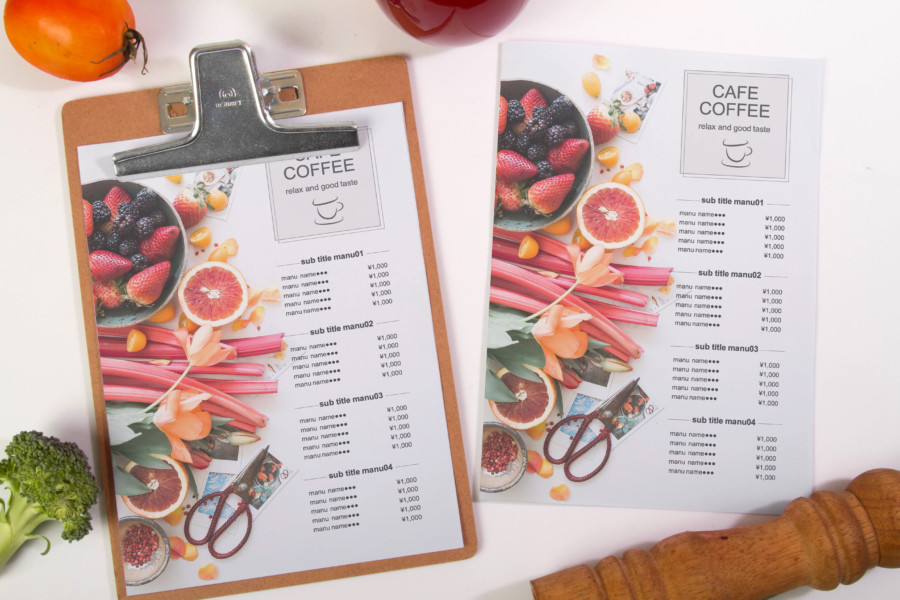 CAFE
COFFEE
relax and good taste
sub title manu01
manu name●●● ¥1,000
manu name●●● ¥1,000
manu name●●● ¥1,000
manu name●●● ¥1,000
manu name●●● ¥1,000
sub title manu02
manu name●●● ¥1,000
manu name●●● ¥1,000
manu name●●● ¥1,000
manu name●●● ¥1,000
manu name●●● ¥1,000
sub title manu03
manu name●●● ¥1,000
manu name●●● ¥1,000
manu name●●● ¥1,000
manu name●●● ¥1,000
manu name●●● ¥1,000
sub title manu04
manu name●●● ¥1,000
manu name●●● ¥1,000
manu name●●● ¥1,000
manu name●●● ¥1,000
manu name●●● ¥1,000
CAFE
COFFEE
relax and good taste
sub title manu01
manu name●●● ¥1,000
manu name●●● ¥1,000
manu name●●● ¥1,000
manu name●●● ¥1,000
manu name●●● ¥1,000
sub title manu02
manu name●●● ¥1,000
manu name●●● ¥1,000
manu name●●● ¥1,000
manu name●●● ¥1,000
manu name●●● ¥1,000
sub title manu03
manu name●●● ¥1,000
manu name●●● ¥1,000
manu name●●● ¥1,000
manu name●●● ¥1,000
manu name●●● ¥1,000
sub title manu04
manu name●●● ¥1,000
manu name●●● ¥1,000
manu name●●● ¥1,000
manu name●●● ¥1,000
manu name●●● ¥1,000